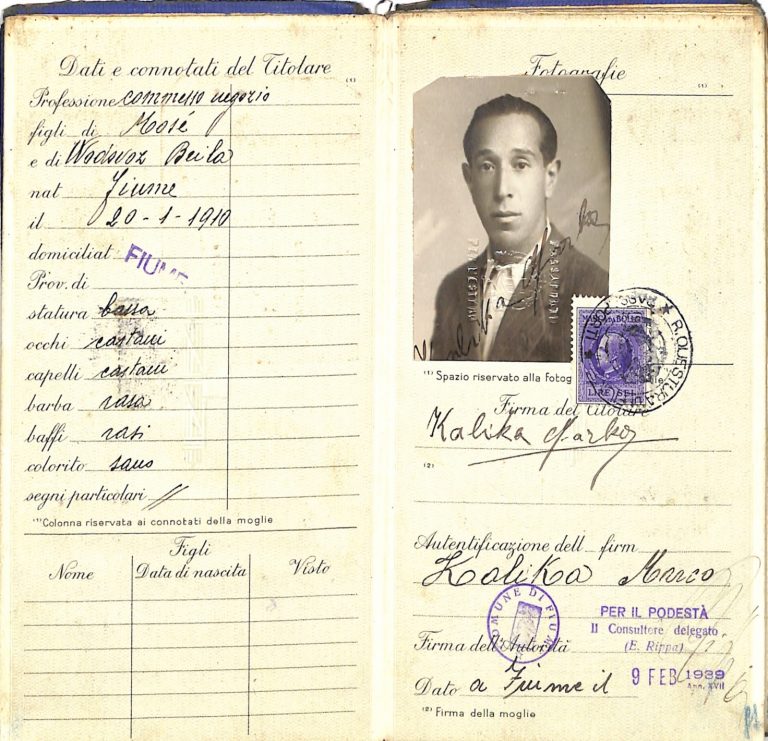 Dati e connotati del Titolare (1)
Professione commesso negozio
figli di Mosé
e di Wodovoz Beila
nat Fiume
il 20-1-1910
domiciliat FIUME
Prov. di
statura bassa
occhi castani
capelli castani
barba rasa
baffi rasi
colorito sano
segni particolari //
(1) Colonna riservata ai connotati della moglie
Figli
Nome Data di nascita Visto
Fotografie
(1)
(1) Spazio riservato alla fotog
MARCA DA BOLLO
LIRE
R. QUESTURA DI
PASSAPORTI
Firma del Titolare
Kalika Marko
(2)
Autentificazione dell firm
Kalika Marco
COMUNE DI FIUME
PER IL PODESTÀ
Il Consultore delegato
(E. Rippa)
Firma dell'Autorità
9 FEB 1939
Ann. XVII
Dato a Fiume il
(2) Firma della moglie